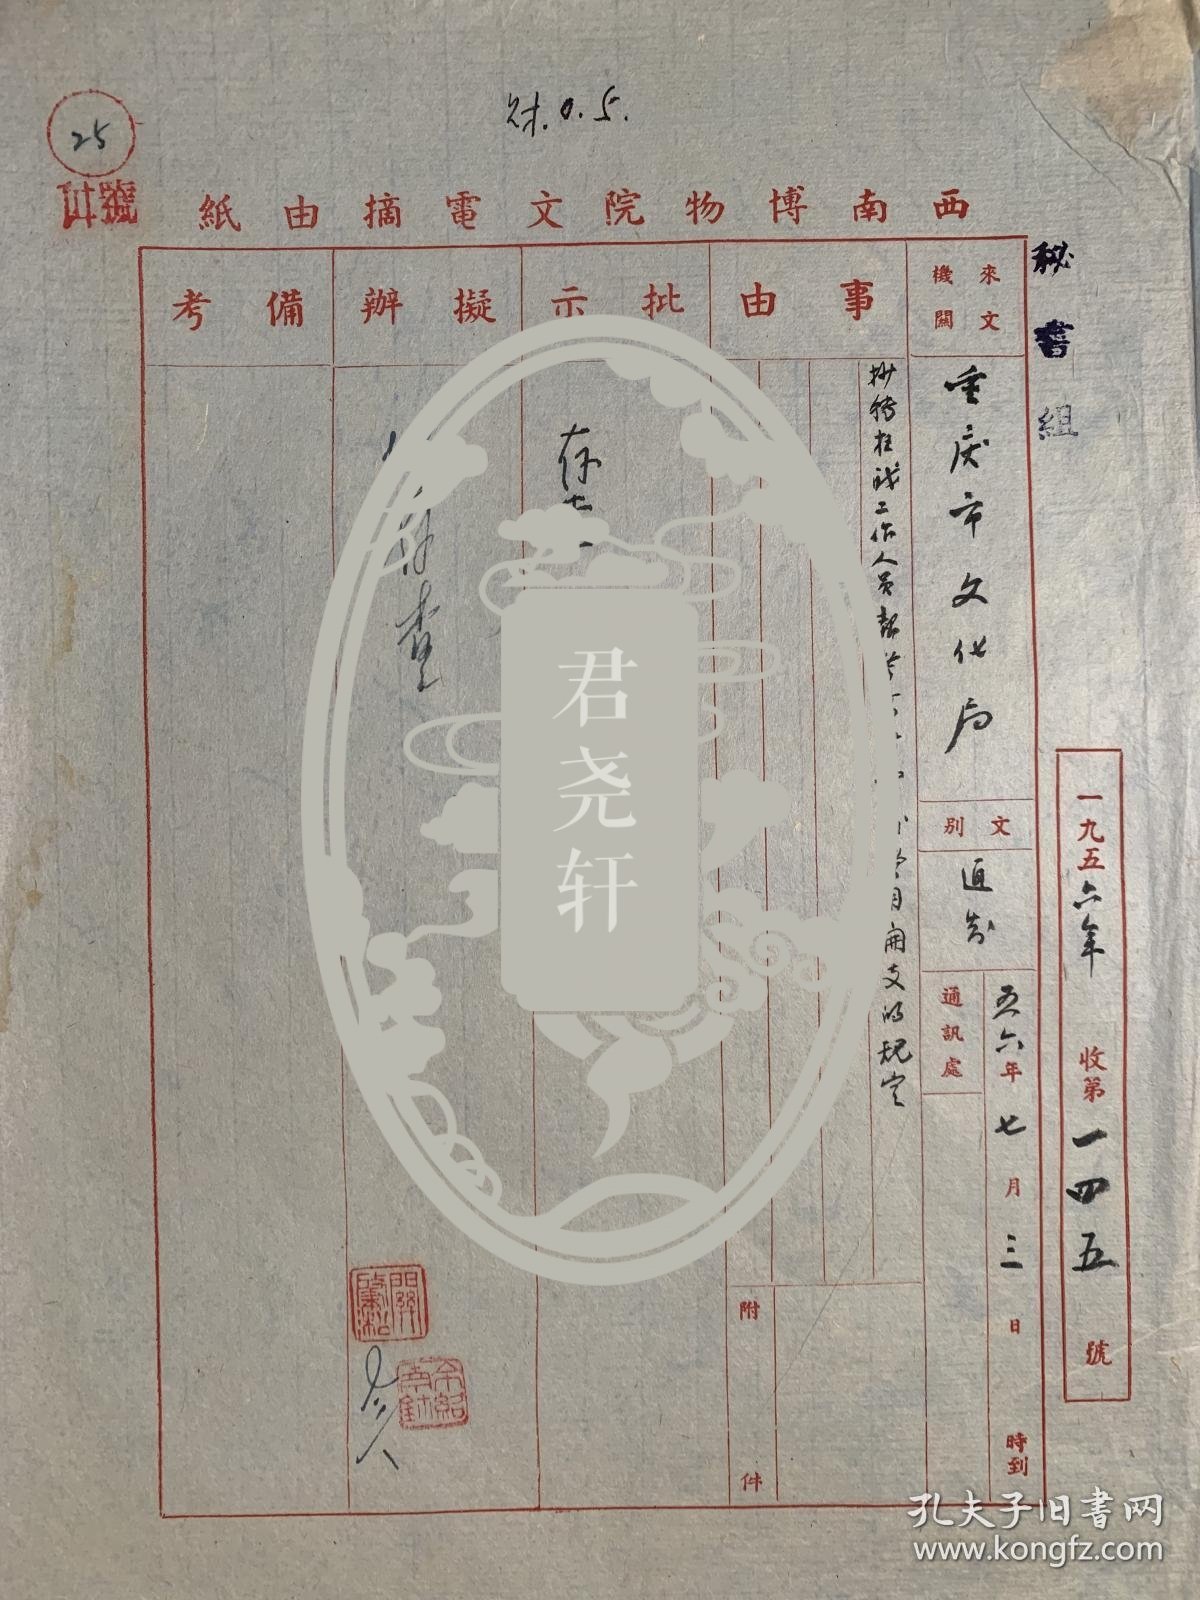 25
號
财.0.5.
西南博物院文電摘由紙
秘書組
一九五六年 收第一四五號
來文機關
重庆市文化局
文別
通知
五六年七月三日 時到
通訊處
事由
抄转在职工作人员
费用开支的规定
附件
批示
存
擬辦
存查
備考
君尧轩
孔夫子旧书网
www.kongfz.com